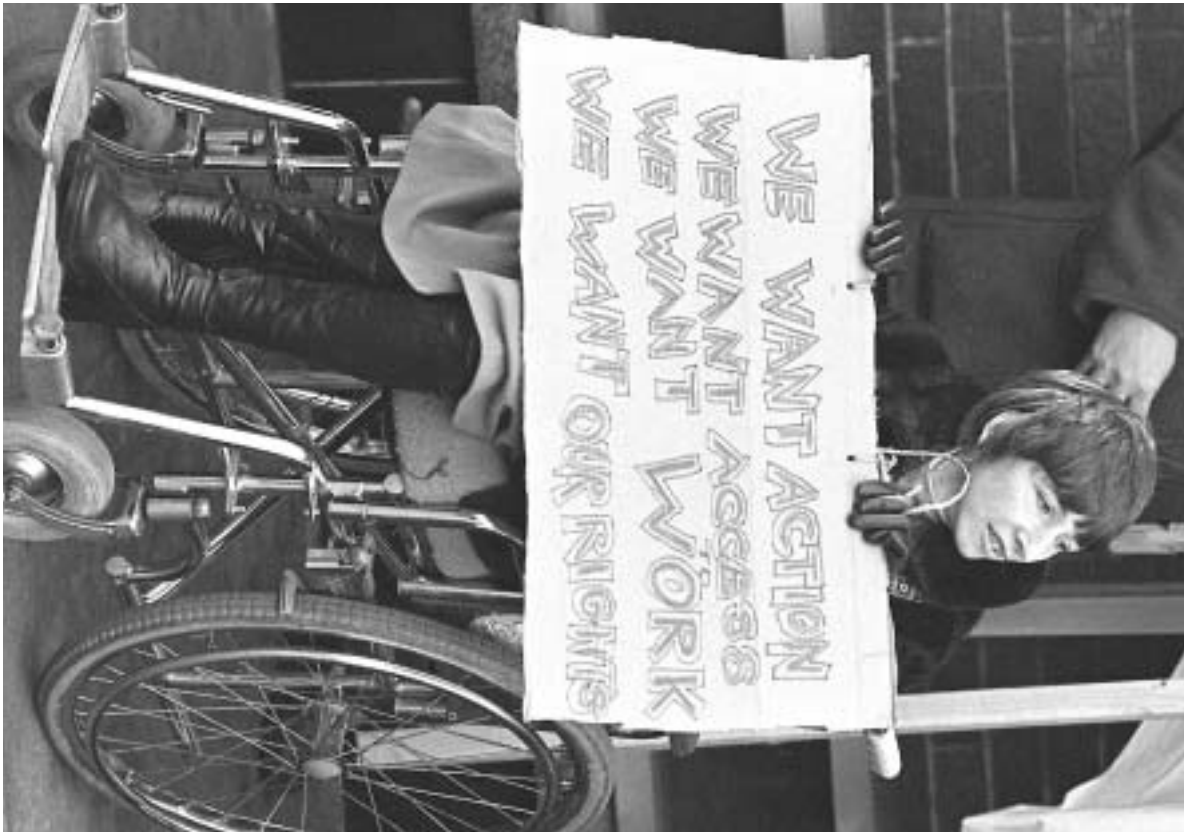 WE WANT ACTION
WE WANT ACCESS
WE WANT WORK
WE WANT OUR RIGHTS